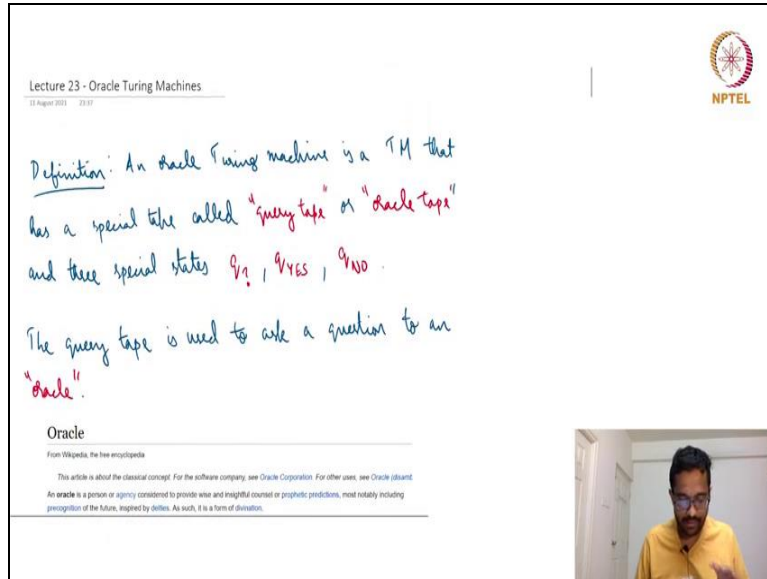 Lecture 23 - Oracle Turing Machines
11 August 2021 23:37
NPTEL
Definition: An oracle Turing machine is a TM that
has a special tape called "query tape" or "oracle tape"
and three special states q?, qYES, qNO.
The query tape is used to ask a question to an
"oracle".
Oracle
From Wikipedia, the free encyclopedia
This article is about the classical concept. For the software company, see Oracle Corporation. For other uses, see Oracle (disamt
An oracle is a person or agency considered to provide wise and insightful counsel or prophetic predictions, most notably including
precognition of the future, inspired by deities. As such, it is a form of divination.